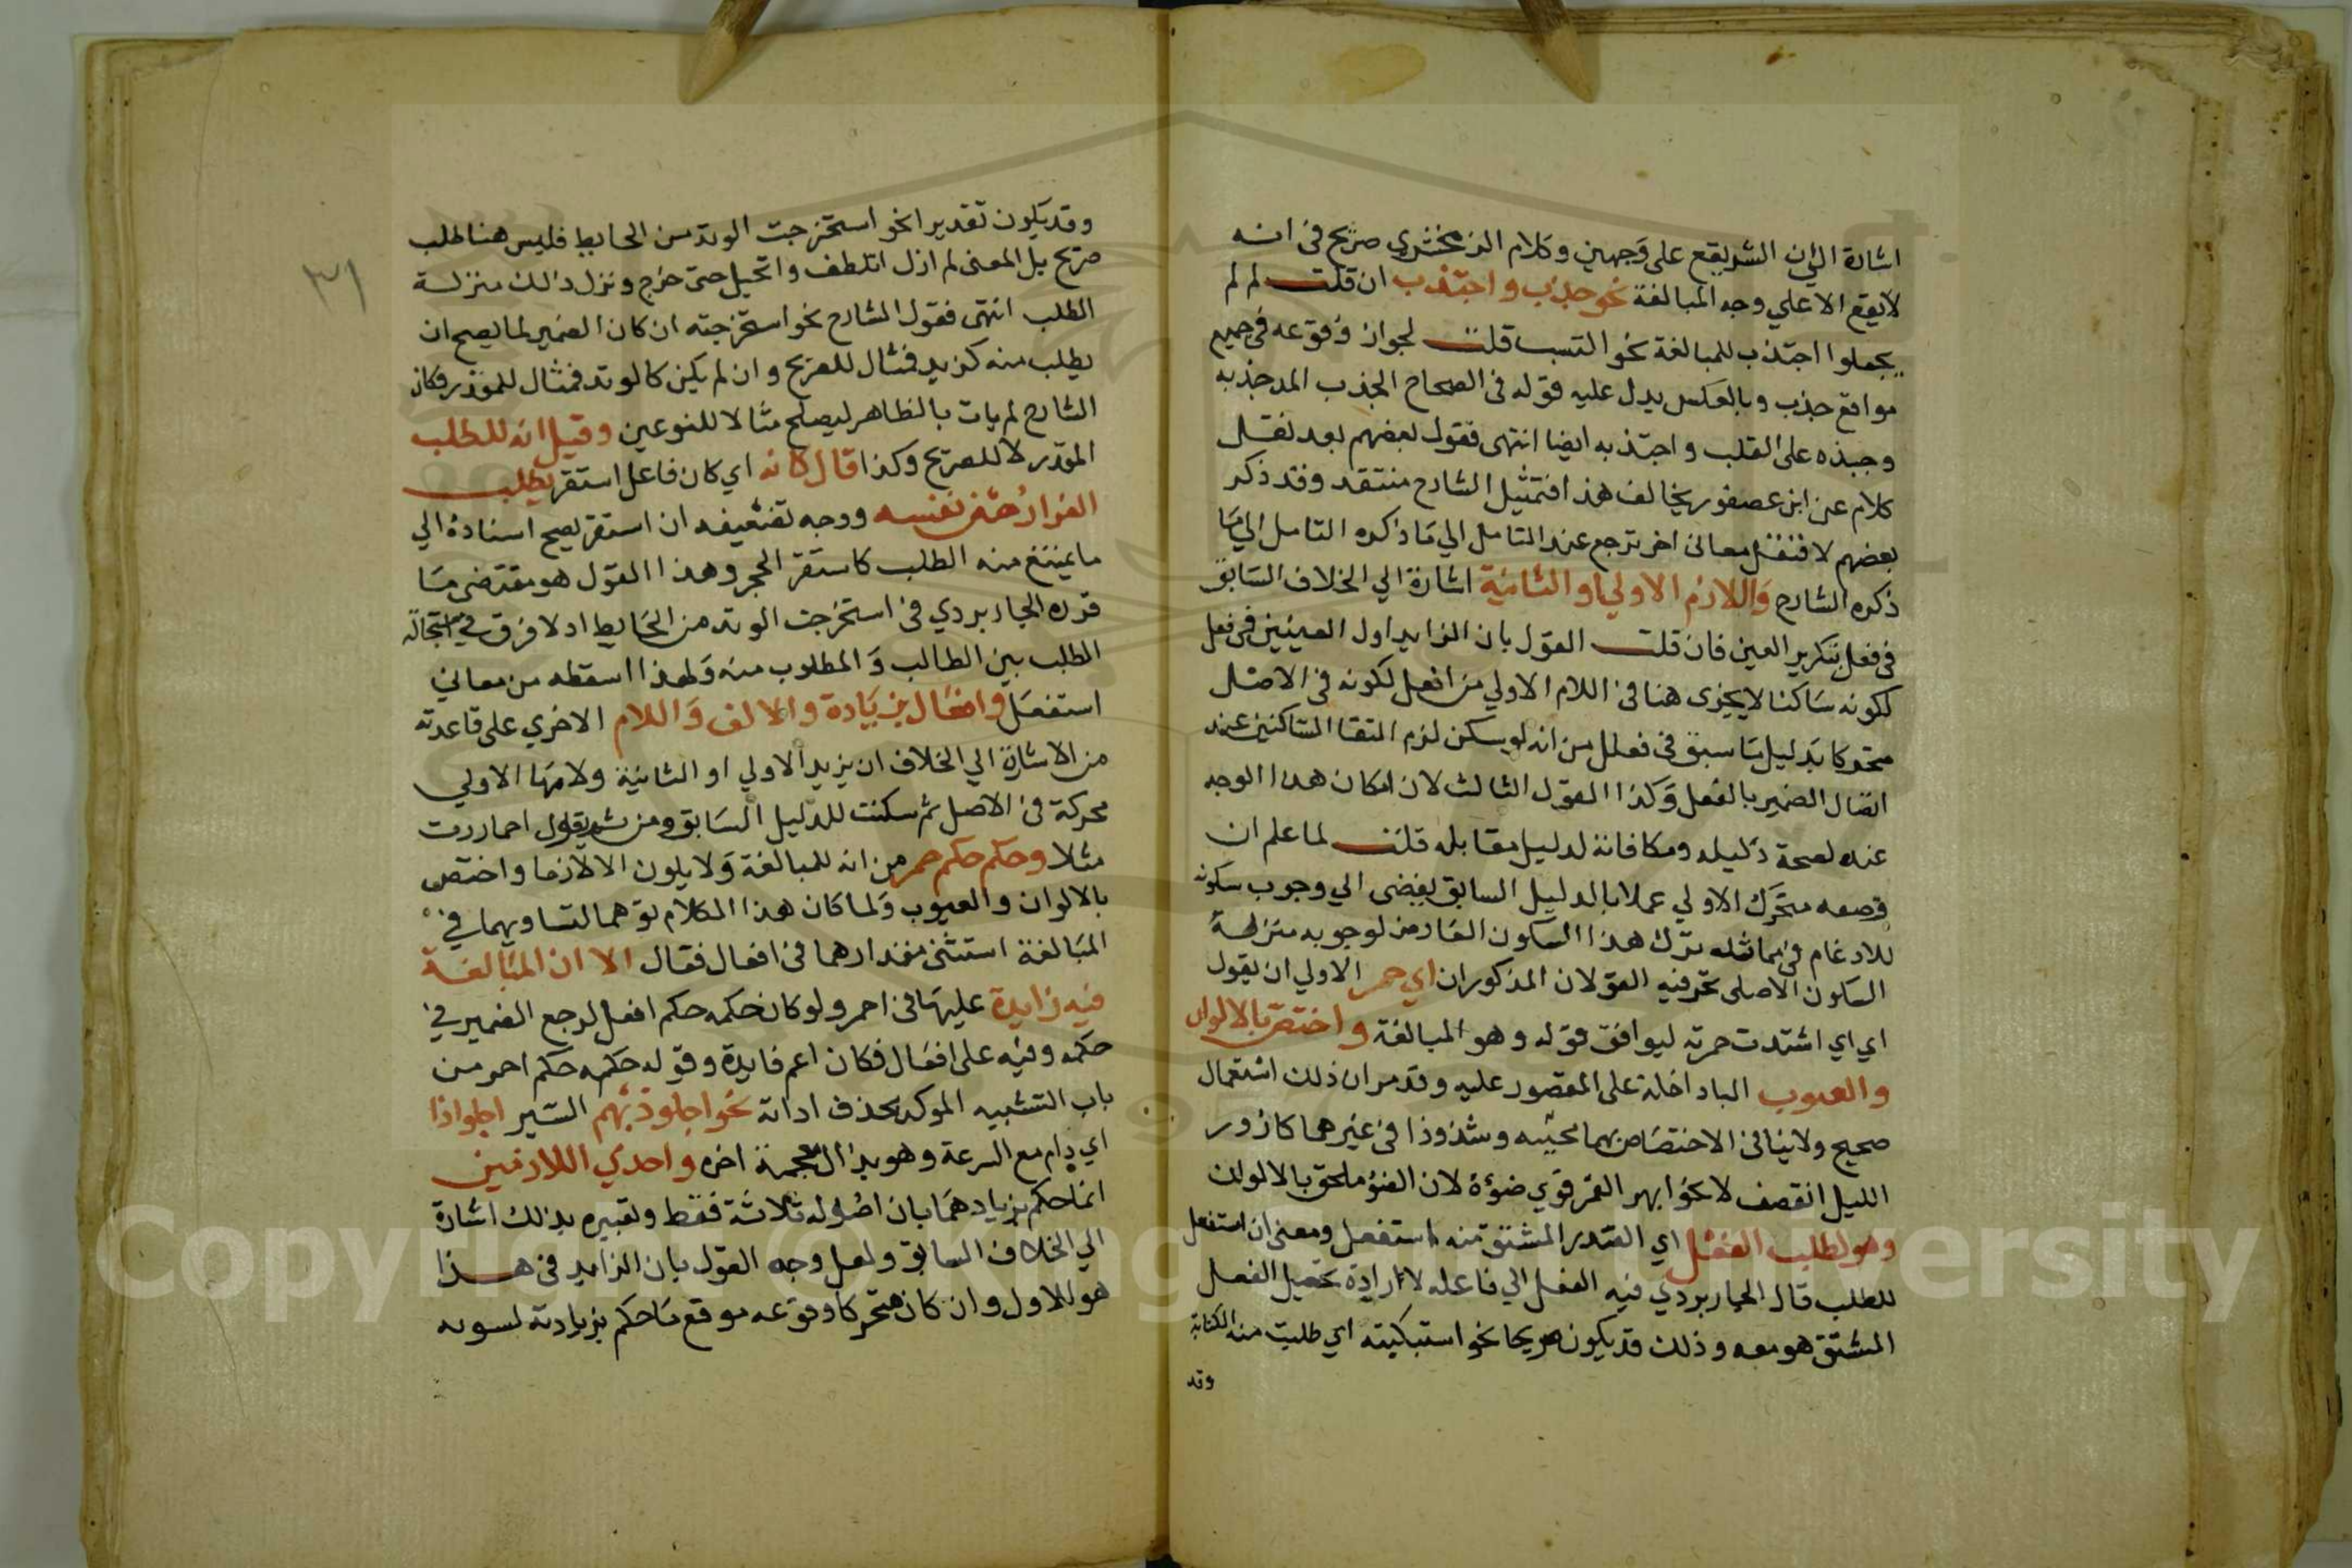 اشارة الي ان الشر يقع على وجهين وكلام الزمخشري صريح في انه
لا يقع الا علي وجه المبالغة نحو جذب واجتذب ان قلت لم لم
يجعلوا اجتذب للمبالغة نحو اكتسب قلت لجواز وقوعه في جميع
مواقع جذب وبالعكس يدل عليه قوله في الصحاح الجذب المد جذبه
وجبذه على القلب واجتذبه ايضا انتهى فقول بعضهم بعد نقل
كلام عن ابن عصفور يخالف هذا فتمثيل الشارح منتقد وقد ذكر
بعضهم لافتعل معاني اخر ترجع عند التامل الي ما ذكره التامل الي ما
ذكره الشارح واللازم الاولي او الثانية اشارة الي الخلاف السابق
في فعل بتكرير العين فان قلت القول بان الزايد اول العينين في فعل
لكونه ساكنا لا يجزى هنا في اللام الاولي من افعل لكونه في الاصل
متحركا بدليل ما سبق في فعلل من انه لو سكن لزم التقا الساكنين عند
اتصال الضمير بالفعل وكذا القول الثالث لان امكان هذا الوجه
عنده لصحة دليله ومكافاته لدليل مقابله قلت لما علم ان
وضعه متحرك الاولي عملا بالدليل السابق يفضى الي وجوب سكونه
للادغام في مماثله ترك هذا السكون العارض لوجوبه منزلة
السكون الاصلى تحر فيه القولان المذكوران اي حمر الاولي ان يقول
اي اي اشتدت حمرته ليوافق قوله وهو المبالغة واختص بالالوان
والعيوب الباداخلة على المقصور عليه وقد مر ان ذلك استعمال
صحيح ولا ينافى الاختصاص بهما مجيئه وشذوذا في غيرهما كازور
الليل انقصف لا نحو ابهر القمر قوي ضوءه لان الضوء ملحق بالالوان
وهو لطلب الفعل اي القدر المشتق منه استفعل ومعنى ان استفعل
للطلب قال الجاربردي فيه الفعل الي فاعله لارادة تحصيل الفعل
المشتق هو معه وذلك قد يكون صريحا نحو استبكيته اي طلبت منه الكتابة
وقد
وقد يكون تقديرا نحو استخرجت الوتد من الحايط فليس هنا طلب
صريح بل المعنى لم ازل اتلطف واتحيل حتى خرج ونزل ذالك منزلة
الطلب انتهى فقول الشارح نحو استخرجته ان كان الضمير لما يصح ان
يطلب منه كزيد فمثال للصريح وان لم يكن كالوتد فمثال للمقدر وكان
الشارح لم يات بالظاهر ليصلح مثالا للنوعين وقيل انه للطلب
المقدر لا للصريح وكذا قال كانه اي كان فاعل استقر يطلب
القرار من نفسه ووجه تضعيفه ان استقر يصح اسناده الي
ما يمتنع منه الطلب كاستقر الحجر وهذا القول هو مقتضى ما
قرره الجاربردي في استخرجت الوتد من الحايط اد لا فرق في استحالة
الطلب بين الطالب والمطلوب منه ولهذا اسقطه من معاني
استفعل وافعال بزيادة والالف واللام الاخري على قاعدته
من الاشارة الي الخلاف ان يزيد الاولي او الثانية ولامها الاولي
محركة في الاصل ثم سكنت للدليل السابق ومن ثم يقول احماررت
مثلا وحكم حكم حمر من انه للمبالغة ولا يلون الا لازما واختص
بالالوان والعيوب ولما كان هذا الكلام توهما لتساويهما في
المبالغة استثنى مقدارهما في افعال فقال الا ان المبالغة
فيه زايدة عليها في احمر ولو كان حكمه حكم افعل لرجع الضمير في
حكمه وفيه على افعال فكان اعم فايدة وقوله حكمه حكم احمر من
باب التشبيه الموكد بحذف اداته نحو اجلوذ بهم السير اجلواذا
اي دام مع السرعة وهو بذال معجمة اخره واحدي اللازمين
انما حكم بزيادهما بان اصوله ثلاثة فقط وتعبيره بذلك اشارة
الي الخلاف السابق ولعل وجه القول بان الزايد في هذا
هو للاول وان كان متحركا وقوعه موقع ما حكم بزيادته لسو به
٣١
Copyright © King University